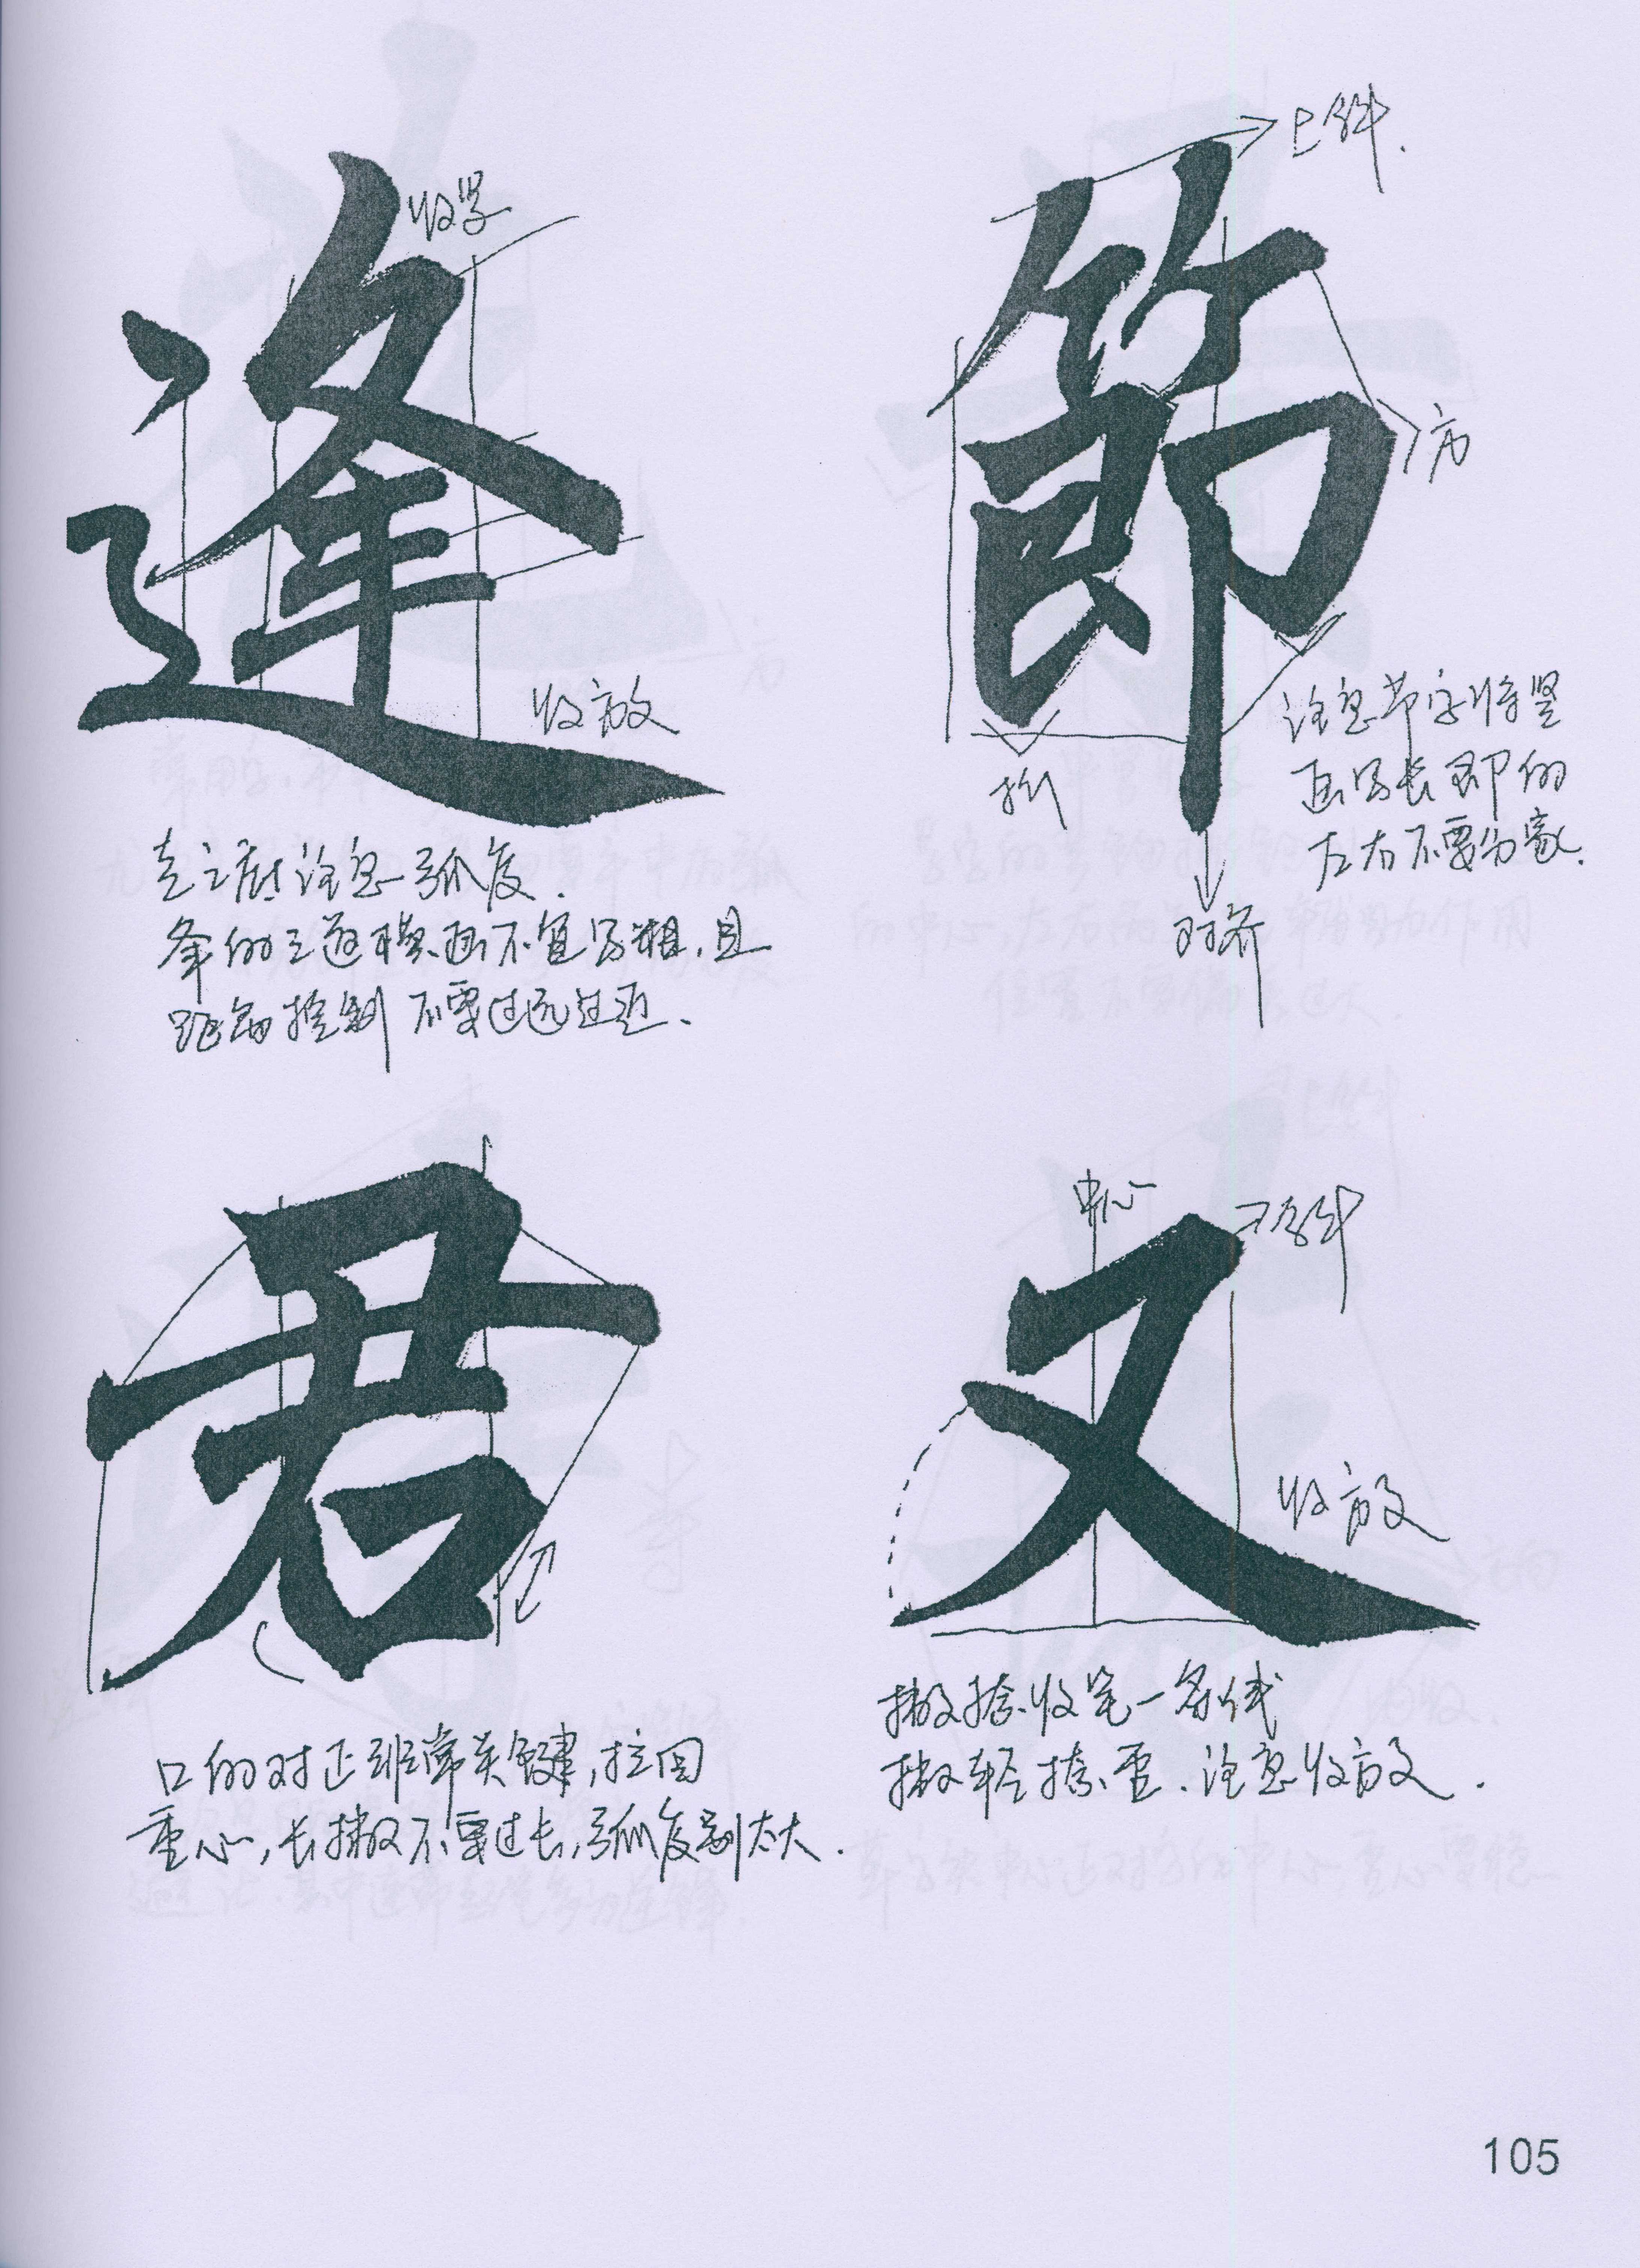 逢
收紧
收放
走之底注意弧度.
夆的三道横画不宜写粗,且
距离控制 不要过远过近、
節
上斜.
方
折
对齐
注意节字将竖
画写长即的
左右不要分家.
君
口的对正非常关键,拉回
重心,长撇不要过长,弧度别太大.
又
中心
收放
撇捺收笔一条线
撇轻捺重.注意收放.
105